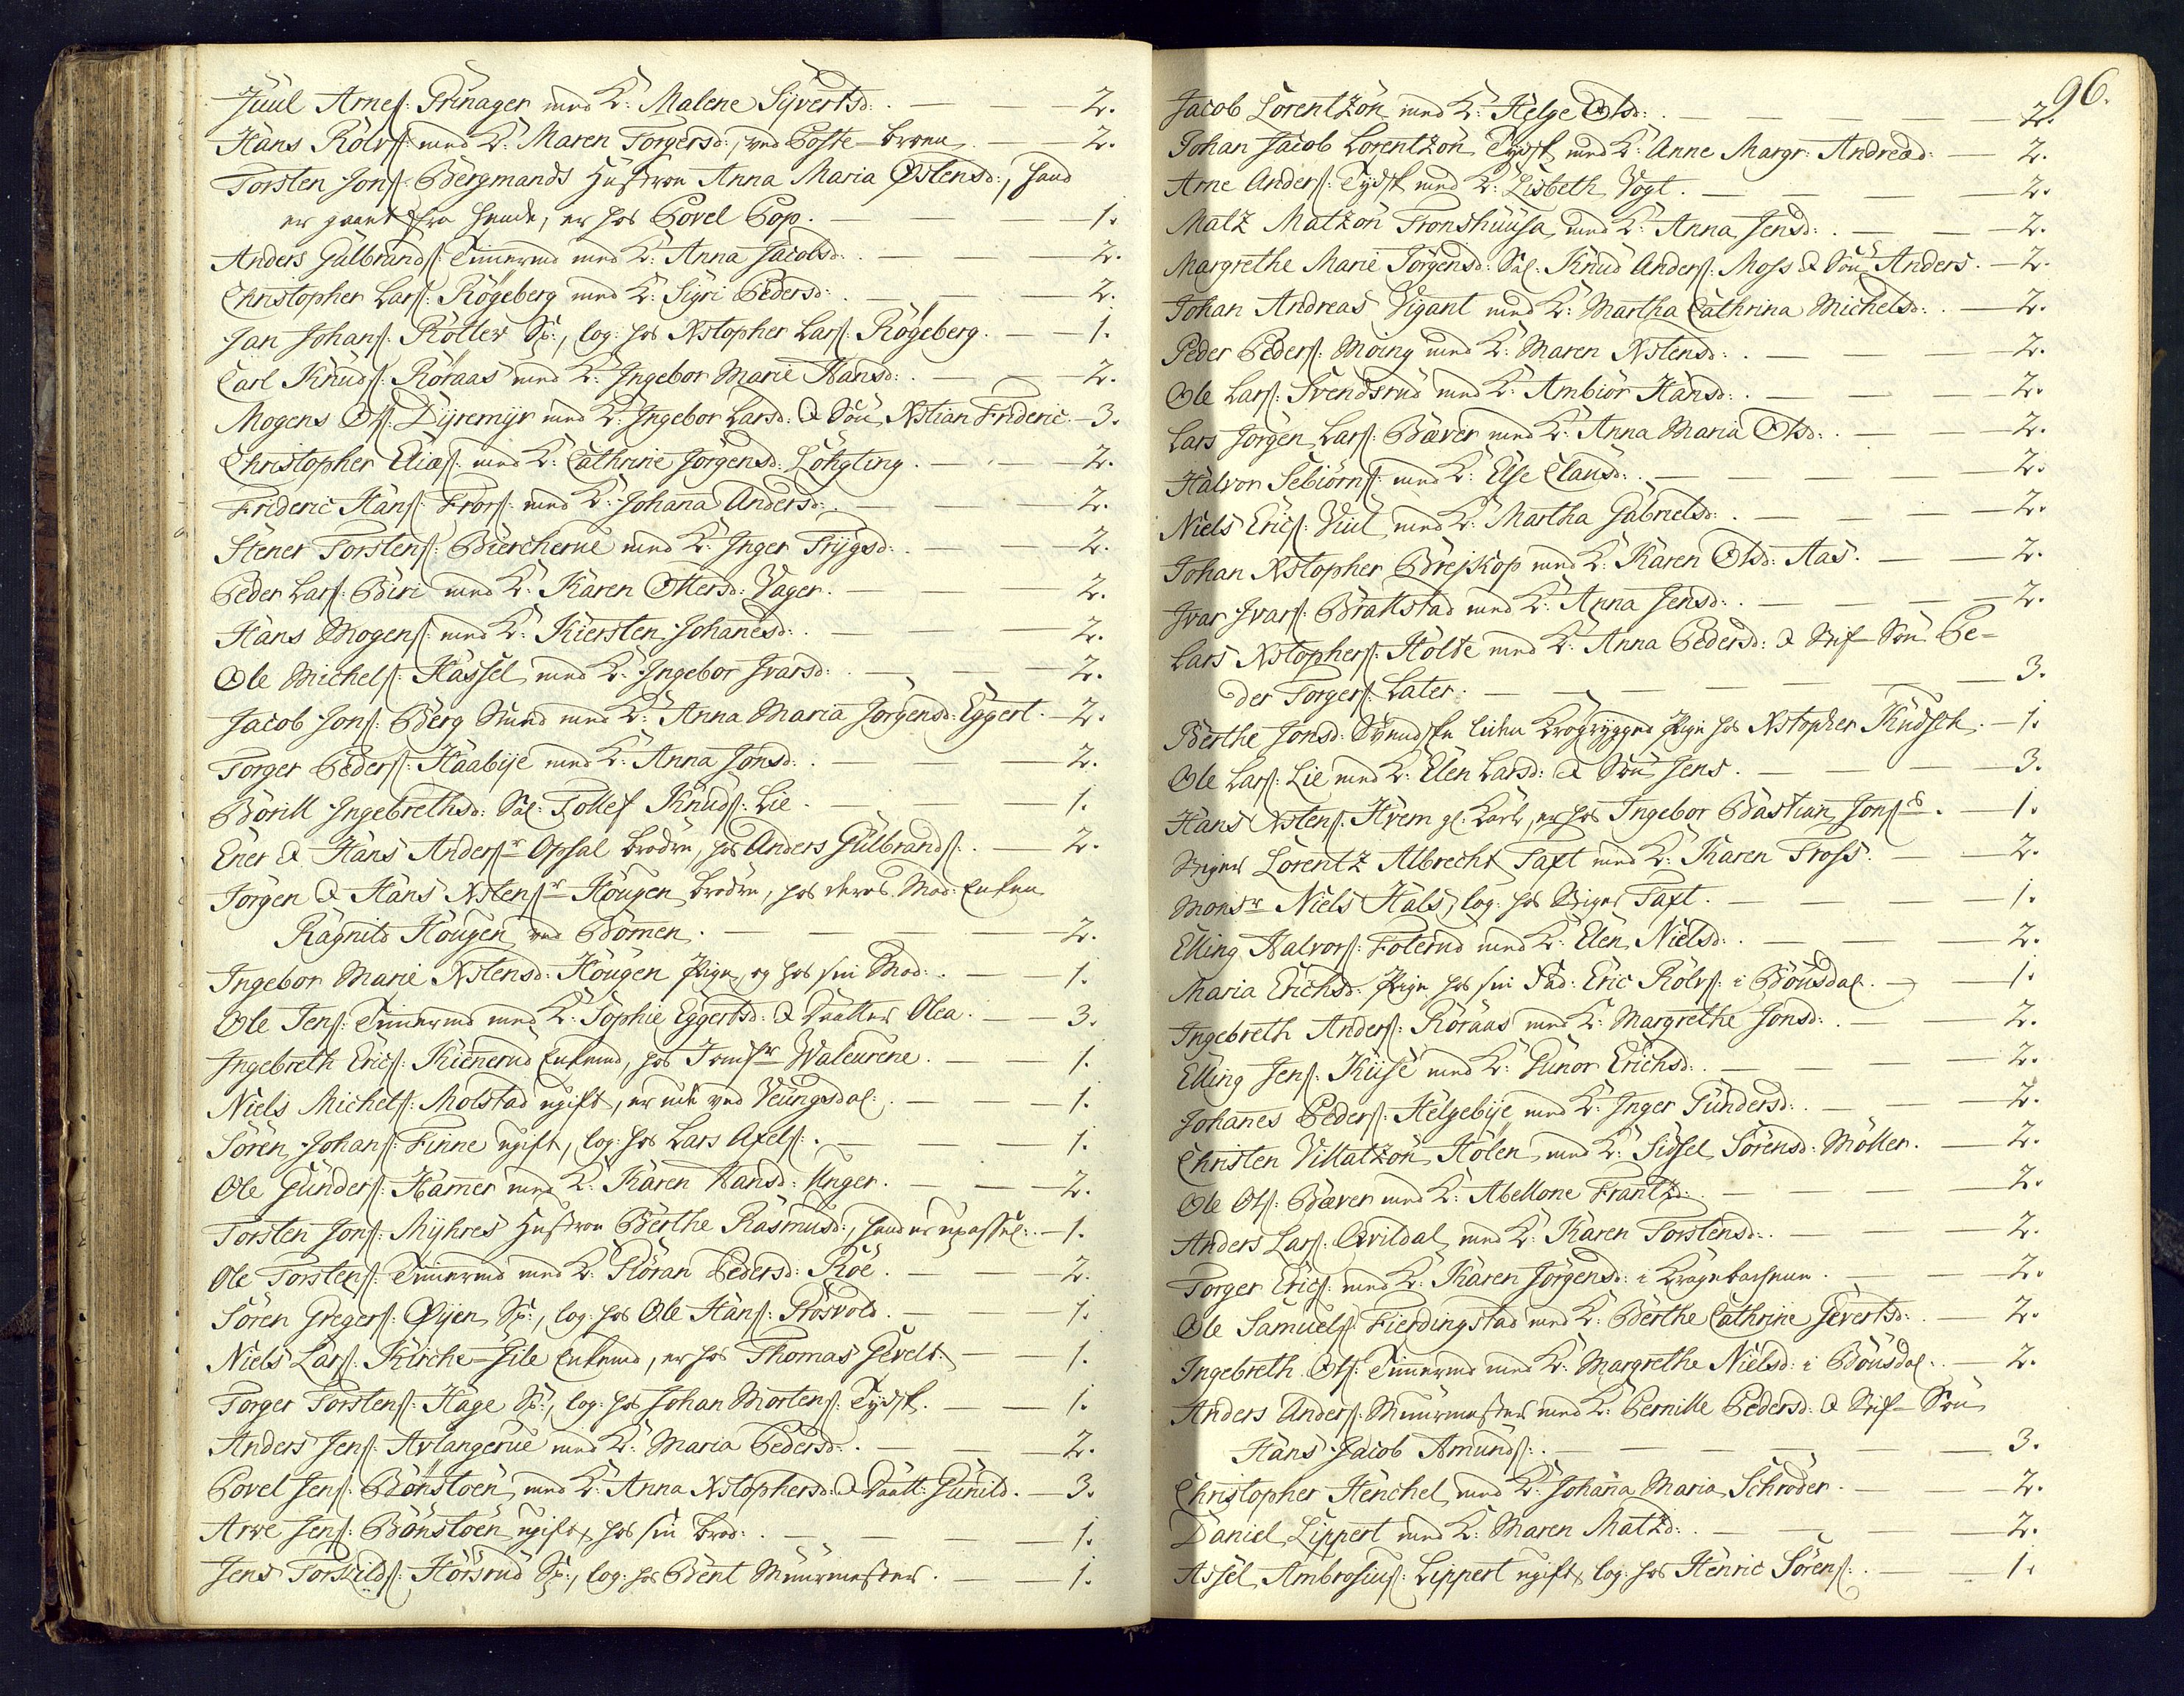 Juul Arnes: Prinager med K: Malene Syvertsd: . — 2.
Hans Rolvs: med K: Maren Torgersd:, ved Poste-broen — 2.
Torsten Jons: Bergmands Hustroe Anna Maria Østensd:, hand
er gaaet fra hende, er hos Povel Pop. — 1.
Anders Gulbrands: Timermd med K: Anna Jacobsd: . — 2.
Christopher Lars: Rögeberg med K: Sigri Pedersd: . — 2.
Jan Johans: Rotler Sp:, log: hos Xstopher Lars: Rögeberg. — 1.
Carl Knuds: Röraas med K: Ingebor Marie Hansd: . — 2.
Mogens Ols: Dyremyr med K: Ingebor Larsd: & Sön Xstian Frideric. — 3.
Christopher Elias: med K: Cathrine Jörgensd: Löngting. — 2.
Frideric Hans: Frors: med K: Johana Andersd: . — 2.
Stener Torstens: Biercherue med K: Inger Trygsd: . — 2.
Peder Lars: Biri med K: Karen Ottersd: Vager. — 2.
Hans Mogens: med K: Kiersten Johanesd: . — 2.
Ole Michels: Hassel med K: Ingebor Ivarsd: . — 2.
Jacob Jons: Berg Smed med K: Anna Maria Jörgensd: Eggert. — 2.
Torger Peders: Haabye med K: Anna Jonsd: . — 2.
Borill Ingebrethsd: Sal: Tollef Knuds: Lie. — 1.
Ener & Hans Andersr Opsal brödre, hos Anders Gulbrands: . — 2.
Jörgen & Hans Xstensr Hougen brödre, hos deres Mod: Enken
Ragnild Hougen ved Bommen. — 2.
Ingebor Marie Xstensd: Hougen Pige, og hos sin Mod: . — 1.
Ole Jens: Timermd med K: Sophie Eggertsd: & Daatter Olea. — 3.
Ingebreth Erics: Kienerud Enkemd, hos Jomfr Waleurene. — 1.
Niels Michels: Molstad ugift, er ude ved Veungsdal: . — 1.
Sören Johans: Finne ugift, log: hos Lars Axels: . — 1.
Ole Gunders: Hamer med K: Karen Hansd: Unger. — 2.
Torsten Jons: Myhres Hustroe Berthe Rasmusd:, hand er upassel: . — 1.
Ole Torstens: Timermd med K: Goran Pedersd: Roe. — 2.
Sören Gregers: Öyen Sp:, log: hos Ole Hans: Prosvold. — 1.
Niels Lars: Kirche-Gile Enkemd, er hos Thomas Gevelt. — 1.
Torger Torstens: Hage Sp:, log: hos Johan Mortens: Tydsk. — 1.
Anders Jens: Avlangerue med K: Maria Pedersd: . — 2.
Povel Jens: Bönstoen med K: Anna Xstophersd: & Daatt: Gunild. — 3.
Arve Jens: Bönstoen ugift, hos sin brod: . — 1.
Jens Torkilds: Horsrud Sp:, log: hos Bent Muurmester. — 1.
96.
Jacob Lorentzön med K: Helge Olsd: . — 2.
Johan Jacob Lorentzön Tydsk med K: Anne Margr: Andread: — 2.
Arne Anders: Tydsk med K: Lisbeth Vogt. — 2.
Matz Matzön Tronshuusa med K: Anna Jensd: . — 2.
Margrethe Marie Jörgensd: Sal: Knud Anders: Moss & Sön Anders. — 2.
Johan Andreas Vigant med K: Martha Cathrina Michelsd: . — 2.
Peder Peders: Moing med K: Maren Xstensd: . — 2.
Ole Lars: Svendsrud med K: Ambiör Hansd: . — 2.
Lars Jörgen Lars: Bæver med K: Anna Maria Olsd: . — 2.
Halvor Sebiörns: med K: Else Clausd: . — 2.
Niels Erics: Viul med K: Martha Gabrielsd: . — 2.
Johan Xstopher Brejskop med K: Karen Olsd: Aas. — 2.
Ivar Ivars: Bratstad med K: Anna Jensd: . — 2.
Lars Xstophers: Holte med K: Anna Pedersd: & Stif-Sön Pe-
der Torgers: Later: — 3.
Berthe Jonsd: Svendske liden krogrygged Pige hos Xstopher Knusch. — 1.
Ole Lars: Lie med K: Elen Larsd: & Sön Jens. — 3.
Hans Xstens: Hvem gl. Karl, er hos Ingebor Bastian Jonss. — 1.
Stiger Lorentz Albrecht Taxt med K: Karen Tross. — 2.
Monsr Niels Hals, log: hos Stiger Taxt. — 1.
Elling Halvors: Foterud med K: Elen Nielsd: . — 2.
Maria Erichsd: Pige hos sin Fad: Eric Rolvs: i Bönsdal. — 1.
Ingebreth Anders: Röraas med K: Margrethe Jonsd: . — 2.
Elling Jens: Kuse med K: Gunor Erichsd: . — 2.
Johannes Peders: Helgebye med K: Inger Gundersd: . — 2.
Christen Villatzön Holen med K: Sidsel Sörensd: Möller. — 2.
Ole Ols: Bæver med K: Abellone Frantzd: . — 2.
Anders Lars: Qvildal med K: Karen Torstensd: . — 2.
Torger Erics: med K: Karen Jörgensd: i Kragebachene. — 2.
Ole Samuels: Fierdingstad med K: Berthe Cathrine Severtsd: . — 2.
Ingebreth Ols: Timermd med K: Margrethe Nielsd: i Bönsdal. — 2.
Anders Anders: Muurmester med K: Pernille Pedersd: & Stif-Sön
Hans Jacob Amunds: . — 3.
Christopher Henchel med K: Johana Maria Schröder. — 2.
Daniel Lippert med K: Maren Matzd: . — 2.
Assel Ambrosius: Lippert ugift, log: hos Henric Sörens: . — 1.